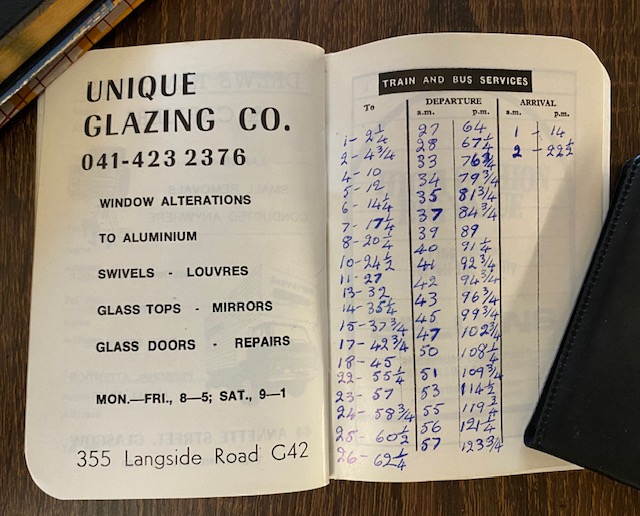 UNIQUE
GLAZING CO.
041-423 2376
WINDOW ALTERATIONS
TO ALUMINIUM
SWIVELS - LOUVRES
GLASS TOPS - MIRRORS
GLASS DOORS - REPAIRS
MON.—FRI., 8—5; SAT., 9—1
355 Langside Road G42
TRAIN AND BUS SERVICES
To DEPARTURE ARRIVAL
a.m. p.m. a.m. p.m.
1 - 2¼ 27 64 1 - 14
2 - 4¾ 28 67¼ 2 - 22½
4 - 10 33 76¾
5 - 12 34 79¾
6 - 14¼ 35 81¾
7 - 17¼ 37 84¾
8 - 20¼ 39 89
10 - 24½ 40 91¼
11 - 27 41 92¾
13 - 32 42 94¾
14 - 35¼ 43 96¾
15 - 37¾ 45 99¾
17 - 42¾ 47 102¾
18 - 45 50 108¼
22 - 55¼ 51 109¾
23 - 57 53 114½
24 - 58¾ 55 119
25 - 60½ 56 121¼
26 - 62¼ 57 123¾